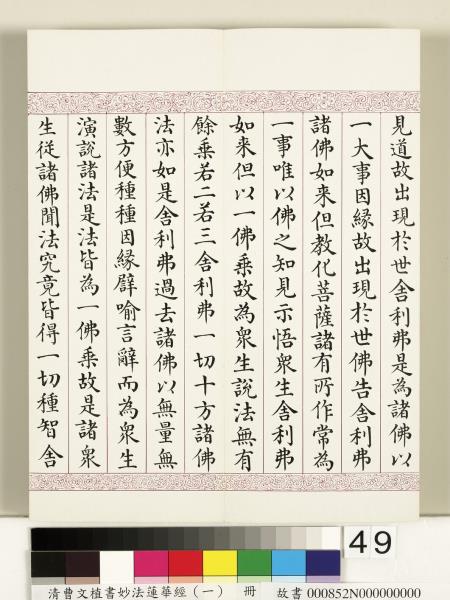 見道故出現於世舍利弗是為諸佛以
一大事因緣故出現於世佛告舍利弗
諸佛如來但教化菩薩諸有所作常為
一事唯以佛之知見示悟衆生舍利弗
如来但以一佛乗故為衆生說法無有
餘乗若二若三舍利弗一切十方諸佛
法亦如是舍利弗過去諸佛以無量無
數方便種種因緣譬喻言辭而為衆生
演說諸法是法皆為一佛乗故是諸衆
生從諸佛聞法究竟皆得一切種智舍
49
清曹文植書妙法蓮華經（一） 冊 故書 000852N000000000